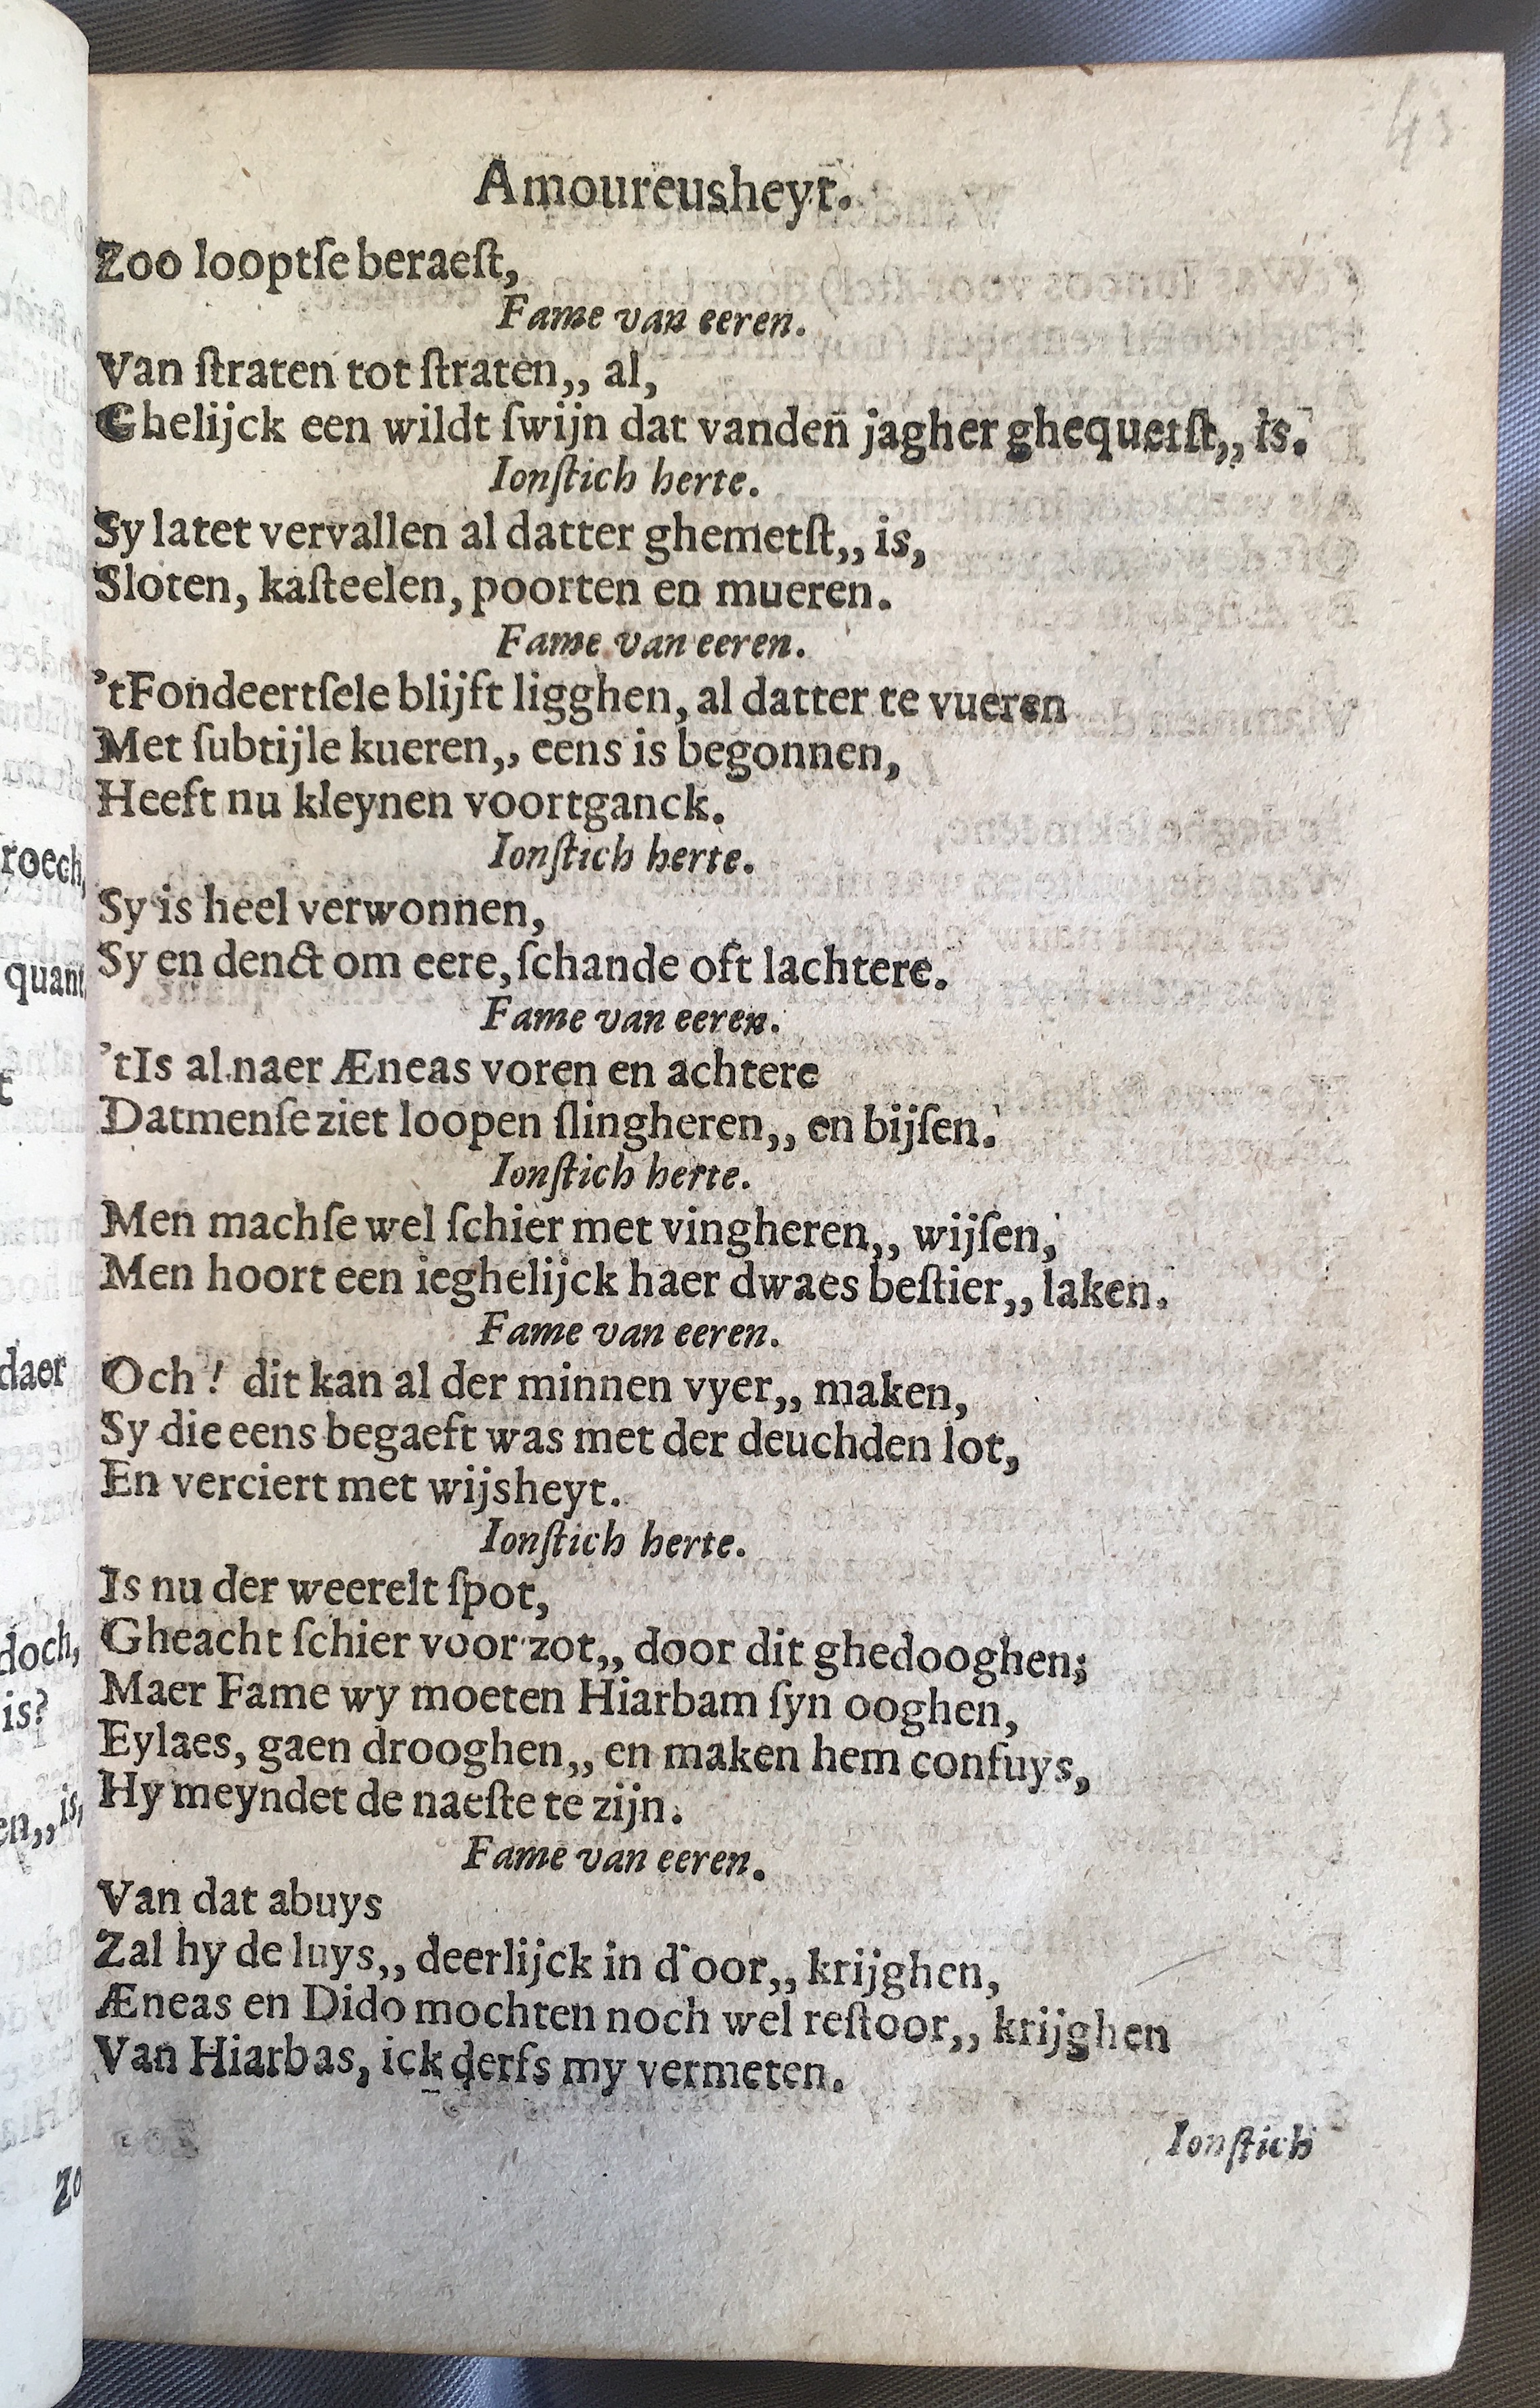 43
Amoureusheyt.
Zoo looptſe beraeſt,
Fame van eeren.
Van ſtraten tot ſtraten,, al,
Ghelijck een wildt ſwijn dat vanden jagher ghequetſt,, is.
Ionſtich herte.
Sy latet vervallen al datter ghemetſt,, is,
Sloten, kaſteelen, poorten en mueren.
Fame van eeren.
'tFondeertſele blijft ligghen, al datter te vueren
Met ſubtijle kueren,, eens is begonnen,
Heeft nu kleynen voortganck.
Ionſtich herte.
Sy is heel verwonnen,
Sy en denct om eere, ſchande oft lachtere.
Fame van eeren.
'tIs al naer Æneas voren en achtere
Datmenſe ziet loopen ſlingheren,, en bijſen.
Ionſtich herte.
Men machſe wel ſchier met vingheren,, wijſen,
Men hoort een ieghelijck haer dwaes beſtier,, laken.
Fame van eeren.
Och! dit kan al der minnen vyer,, maken,
Sy die eens begaeft was met der deuchden lot,
En verciert met wijsheyt.
Ionſtich herte.
Is nu der weerelt ſpot,
Gheacht ſchier voor zot,, door dit ghedooghen;
Maer Fame wy moeten Hiarbam ſyn ooghen,
Eylaes, gaen drooghen,, en maken hem confuys,
Hy meyndet de naeſte te zijn.
Fame van eeren.
Van dat abuys
Zal hy de luys,, deerlijck in d'oor,, krijghen,
Æneas en Dido mochten noch wel reſtoor,, krijghen
Van Hiarbas, ick derfs my vermeten.
Ionſtich
roech,
quant,
t
daer
doch,
is?
en,, is,
Zo